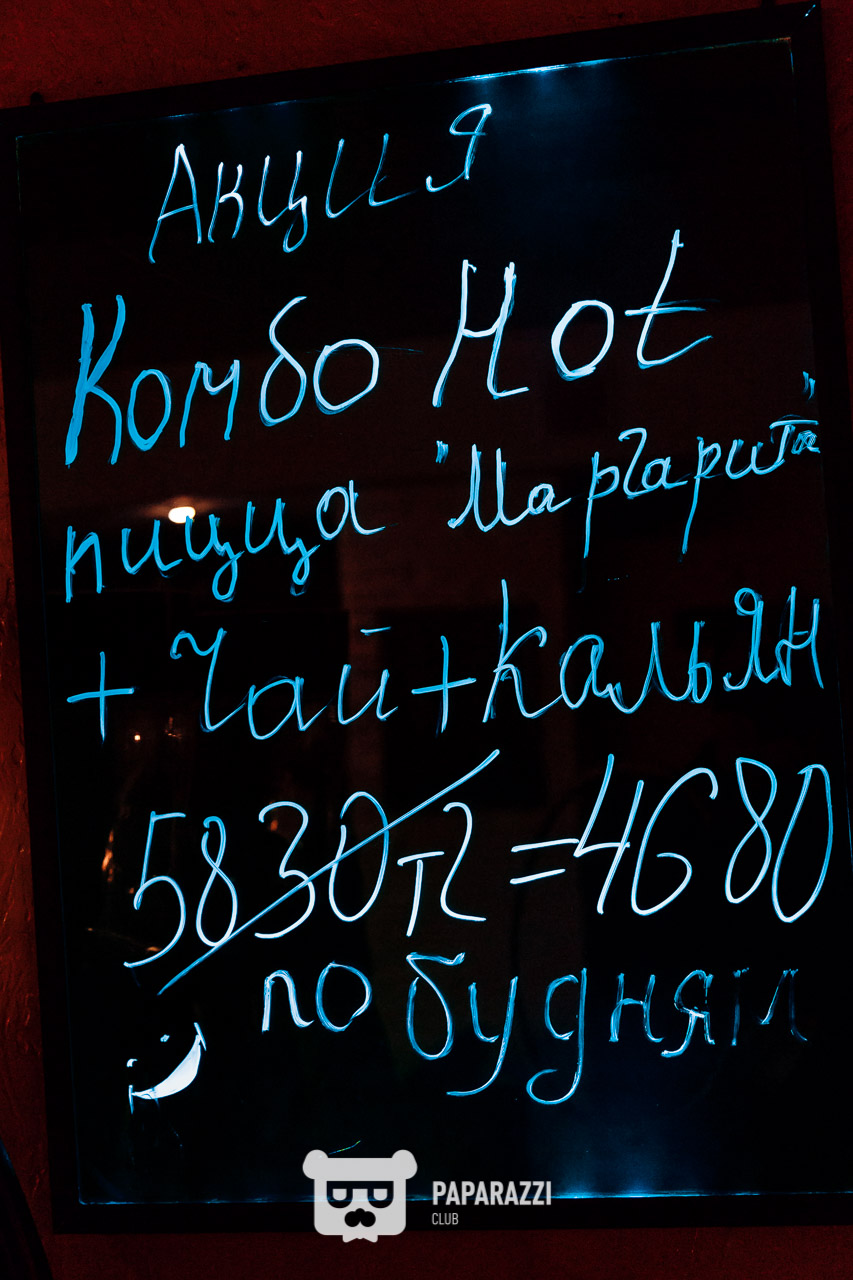 Акция
Комбо Hot
пицца "Маргарита"
+ Чай + Кальян
5830 тг = 4680
по будням
PAPARAZZI
CLUB